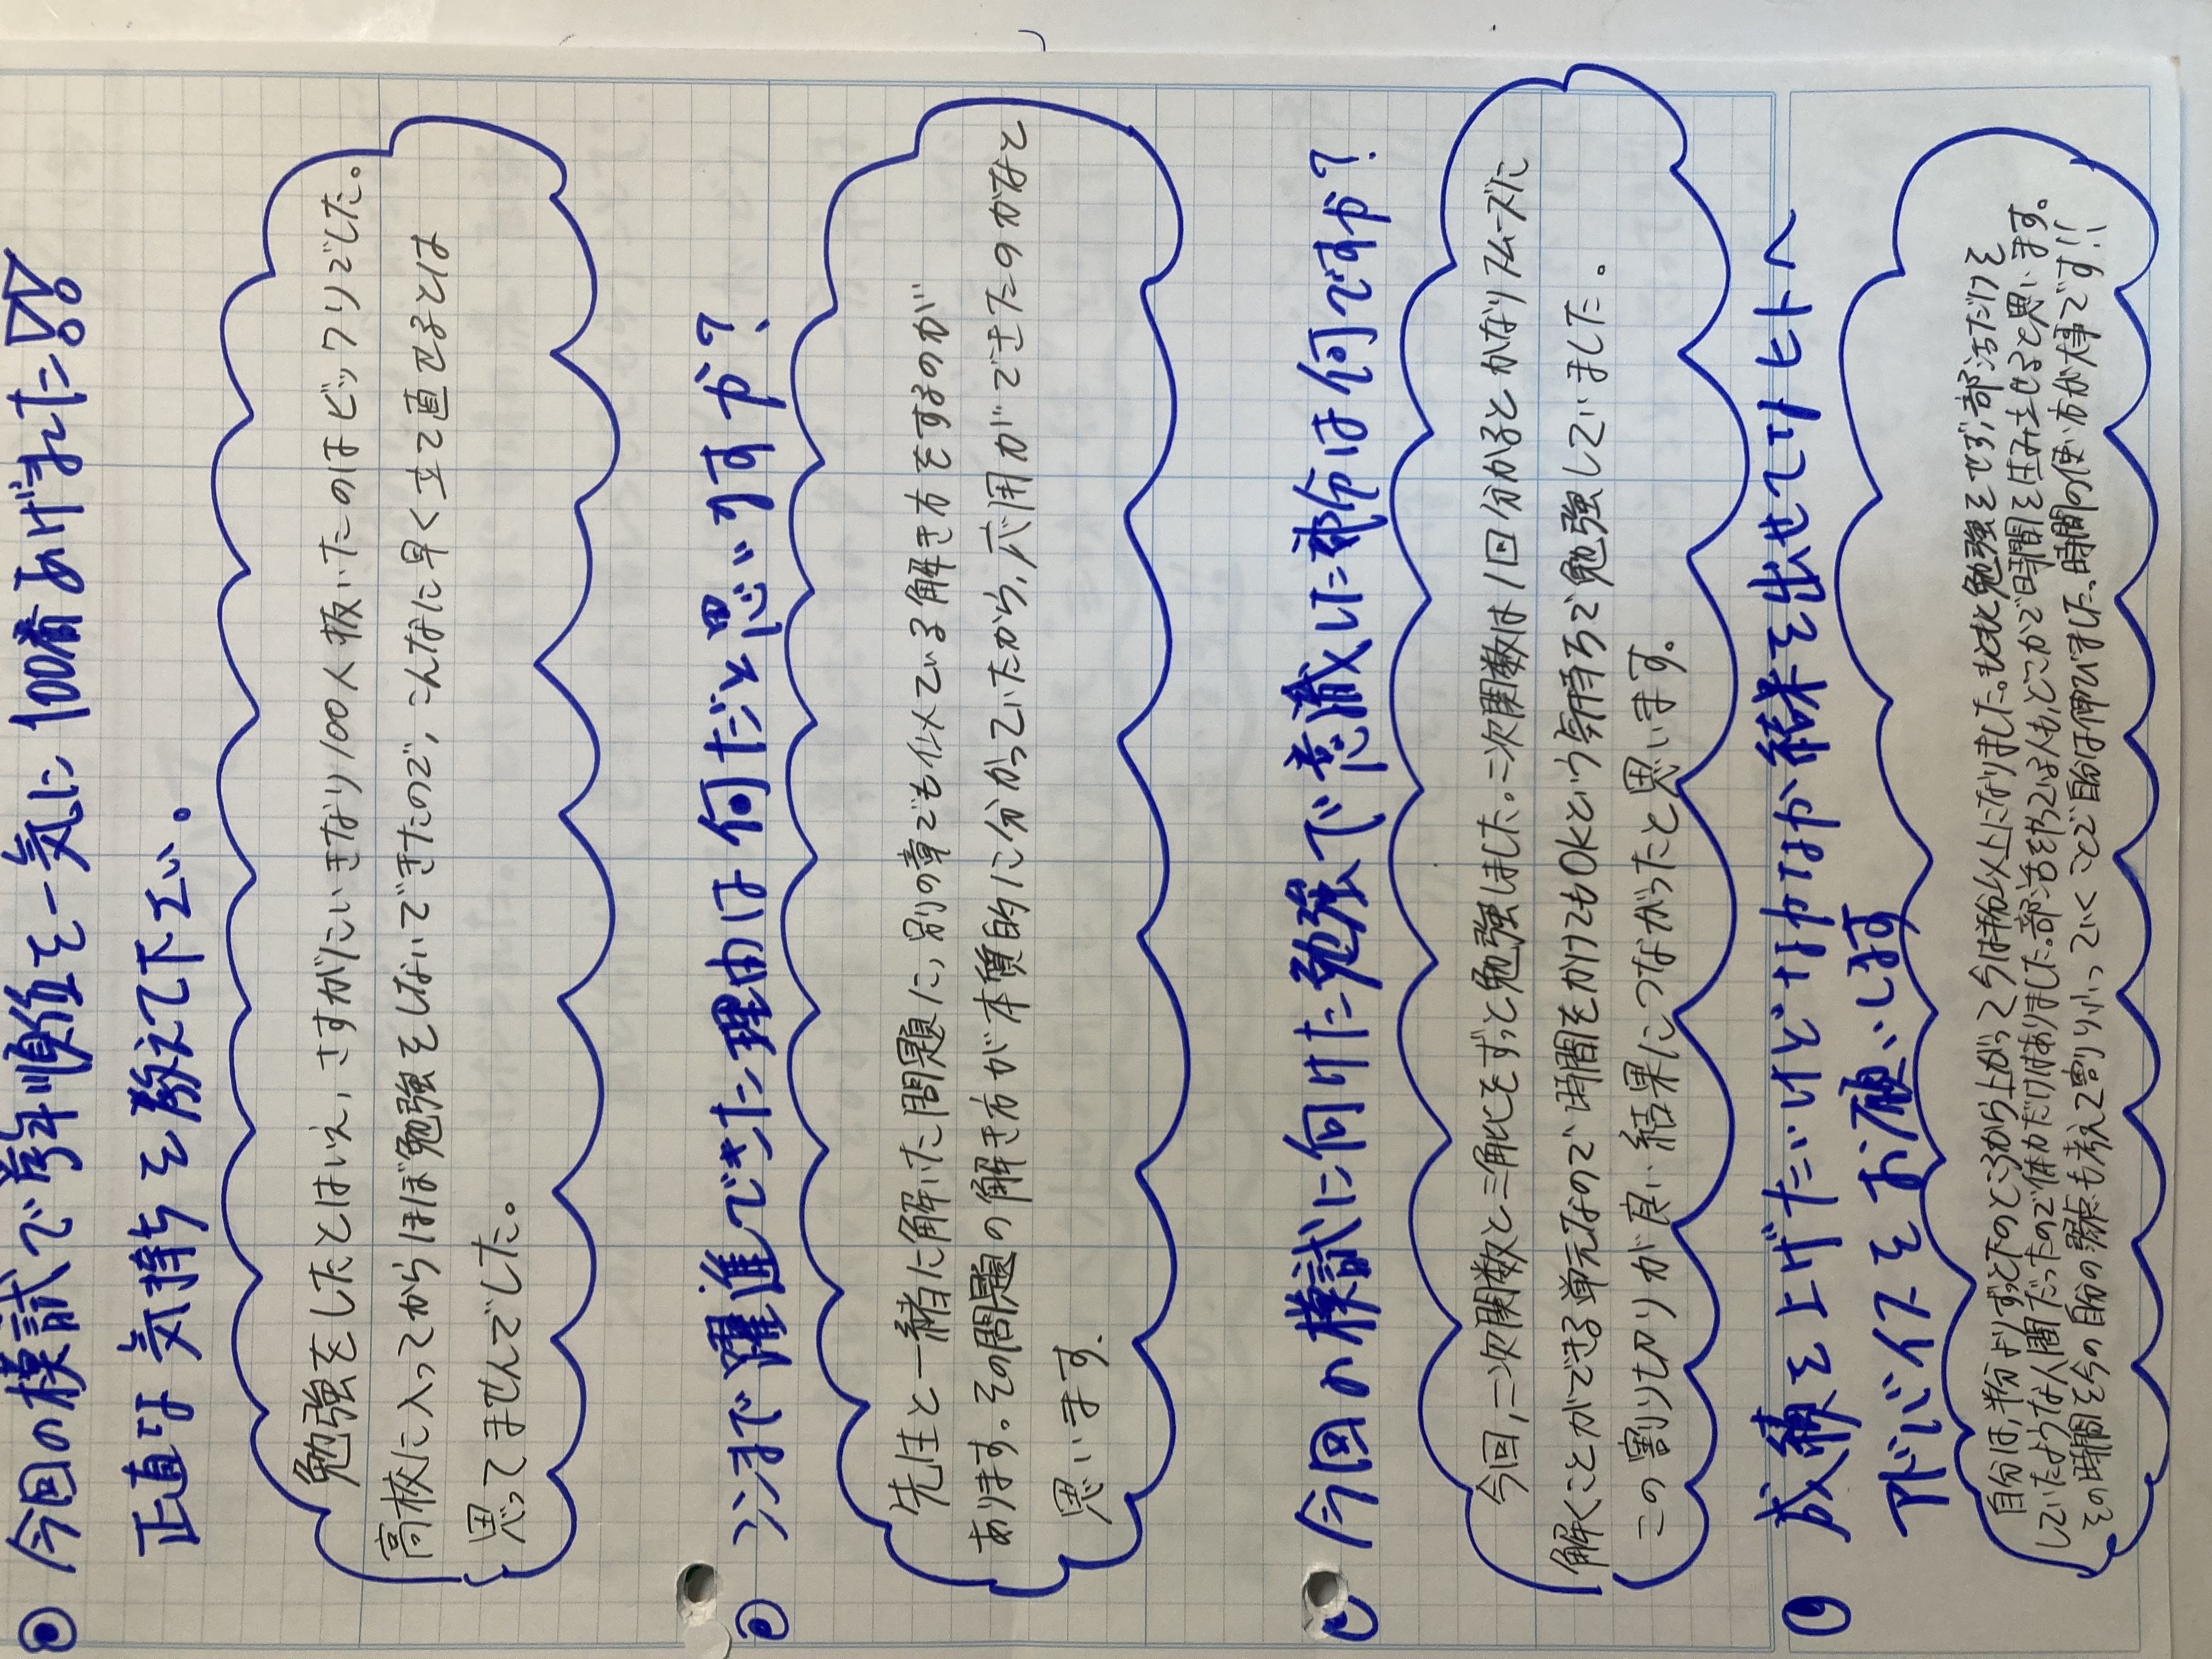 今回の模試で学年順位を一気に100番あげました!!
正直な気持ちを教えて下さい。
勉強をしたとはいえ、さすがにいきなり100人抜いたのはビックリでした。
高校に入ってからほぼ勉強をしないできたので、こんなに早く立て直せるとは
思ってませんでした。
ココまで躍進できた理由は何だと思いますか?
先生と一緒に解いた問題に、別の章でも似ている解き方をするのが
あります。その問題の解き方が本質的に分かっていたから、応用ができたのかなと
思います。
今回の模試に向けた勉強で意識した部分は何ですか?
今回、二次関数と三角比をずっと勉強しました。二次関数は1回分かるとかなりスムーズに
解くことができる単元なので時間をかけてもOKという気持ちで勉強していました。
この割り切りが良い結果につながったと思います。
成績を上げたいけどなかなか結果を出せてないヒトへ
アドバイスをお願いします
自分は、半分よりずっと下のところから上がって今は半分以上になりました。もともと勉強をせず、部活だけを
していたような人間だったので体力だけはありました。部活をやっている人も、どこかで時間を生み出せると思います。
その時間を今の自分の弱点も考えて割り振っていくことで自分は伸びました。時間の使い方が大事です!!